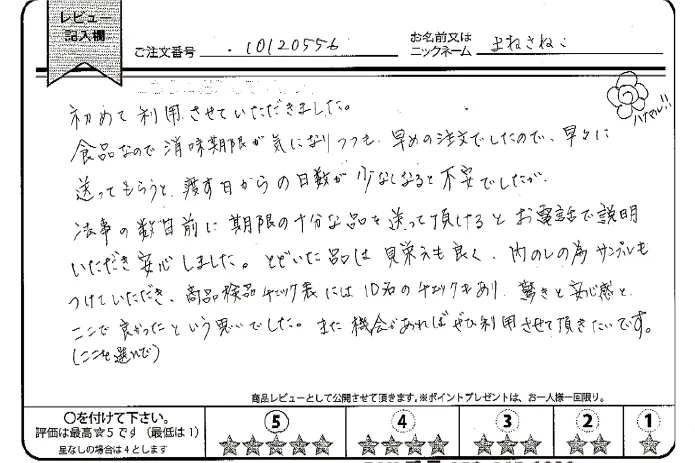 レビュー
記入欄
ご注文番号 10120556
お名前又は
ニックネーム よねさねこ
ハナマル!!
初めて利用させていただきました。
食品なので消味期限が気になりつつも、早めの注文でしたので、早々に
送ってもらうと、渡す日からの日数が少なくなると不安でしたが、
法事の数日前に期限の十分な品を送って頂けるとお電話で説明
いただき安心しました。とどいた品は見栄えも良く、内のしの為サンプルも
つけていただき、商品検品チェック表には10名のチェックもあり、驚きと安心感と、
ここで良かったという思いでした。また機会があればぜひ利用させて頂きたいです。
(ここを選んで)
商品レビューとして公開させて頂きます。※ポイントプレゼントは、お一人様一回限り。
○を付けて下さい。
評価は最高☆5です（最低は1）
星なしの場合は4とします
5 4 3 2 1